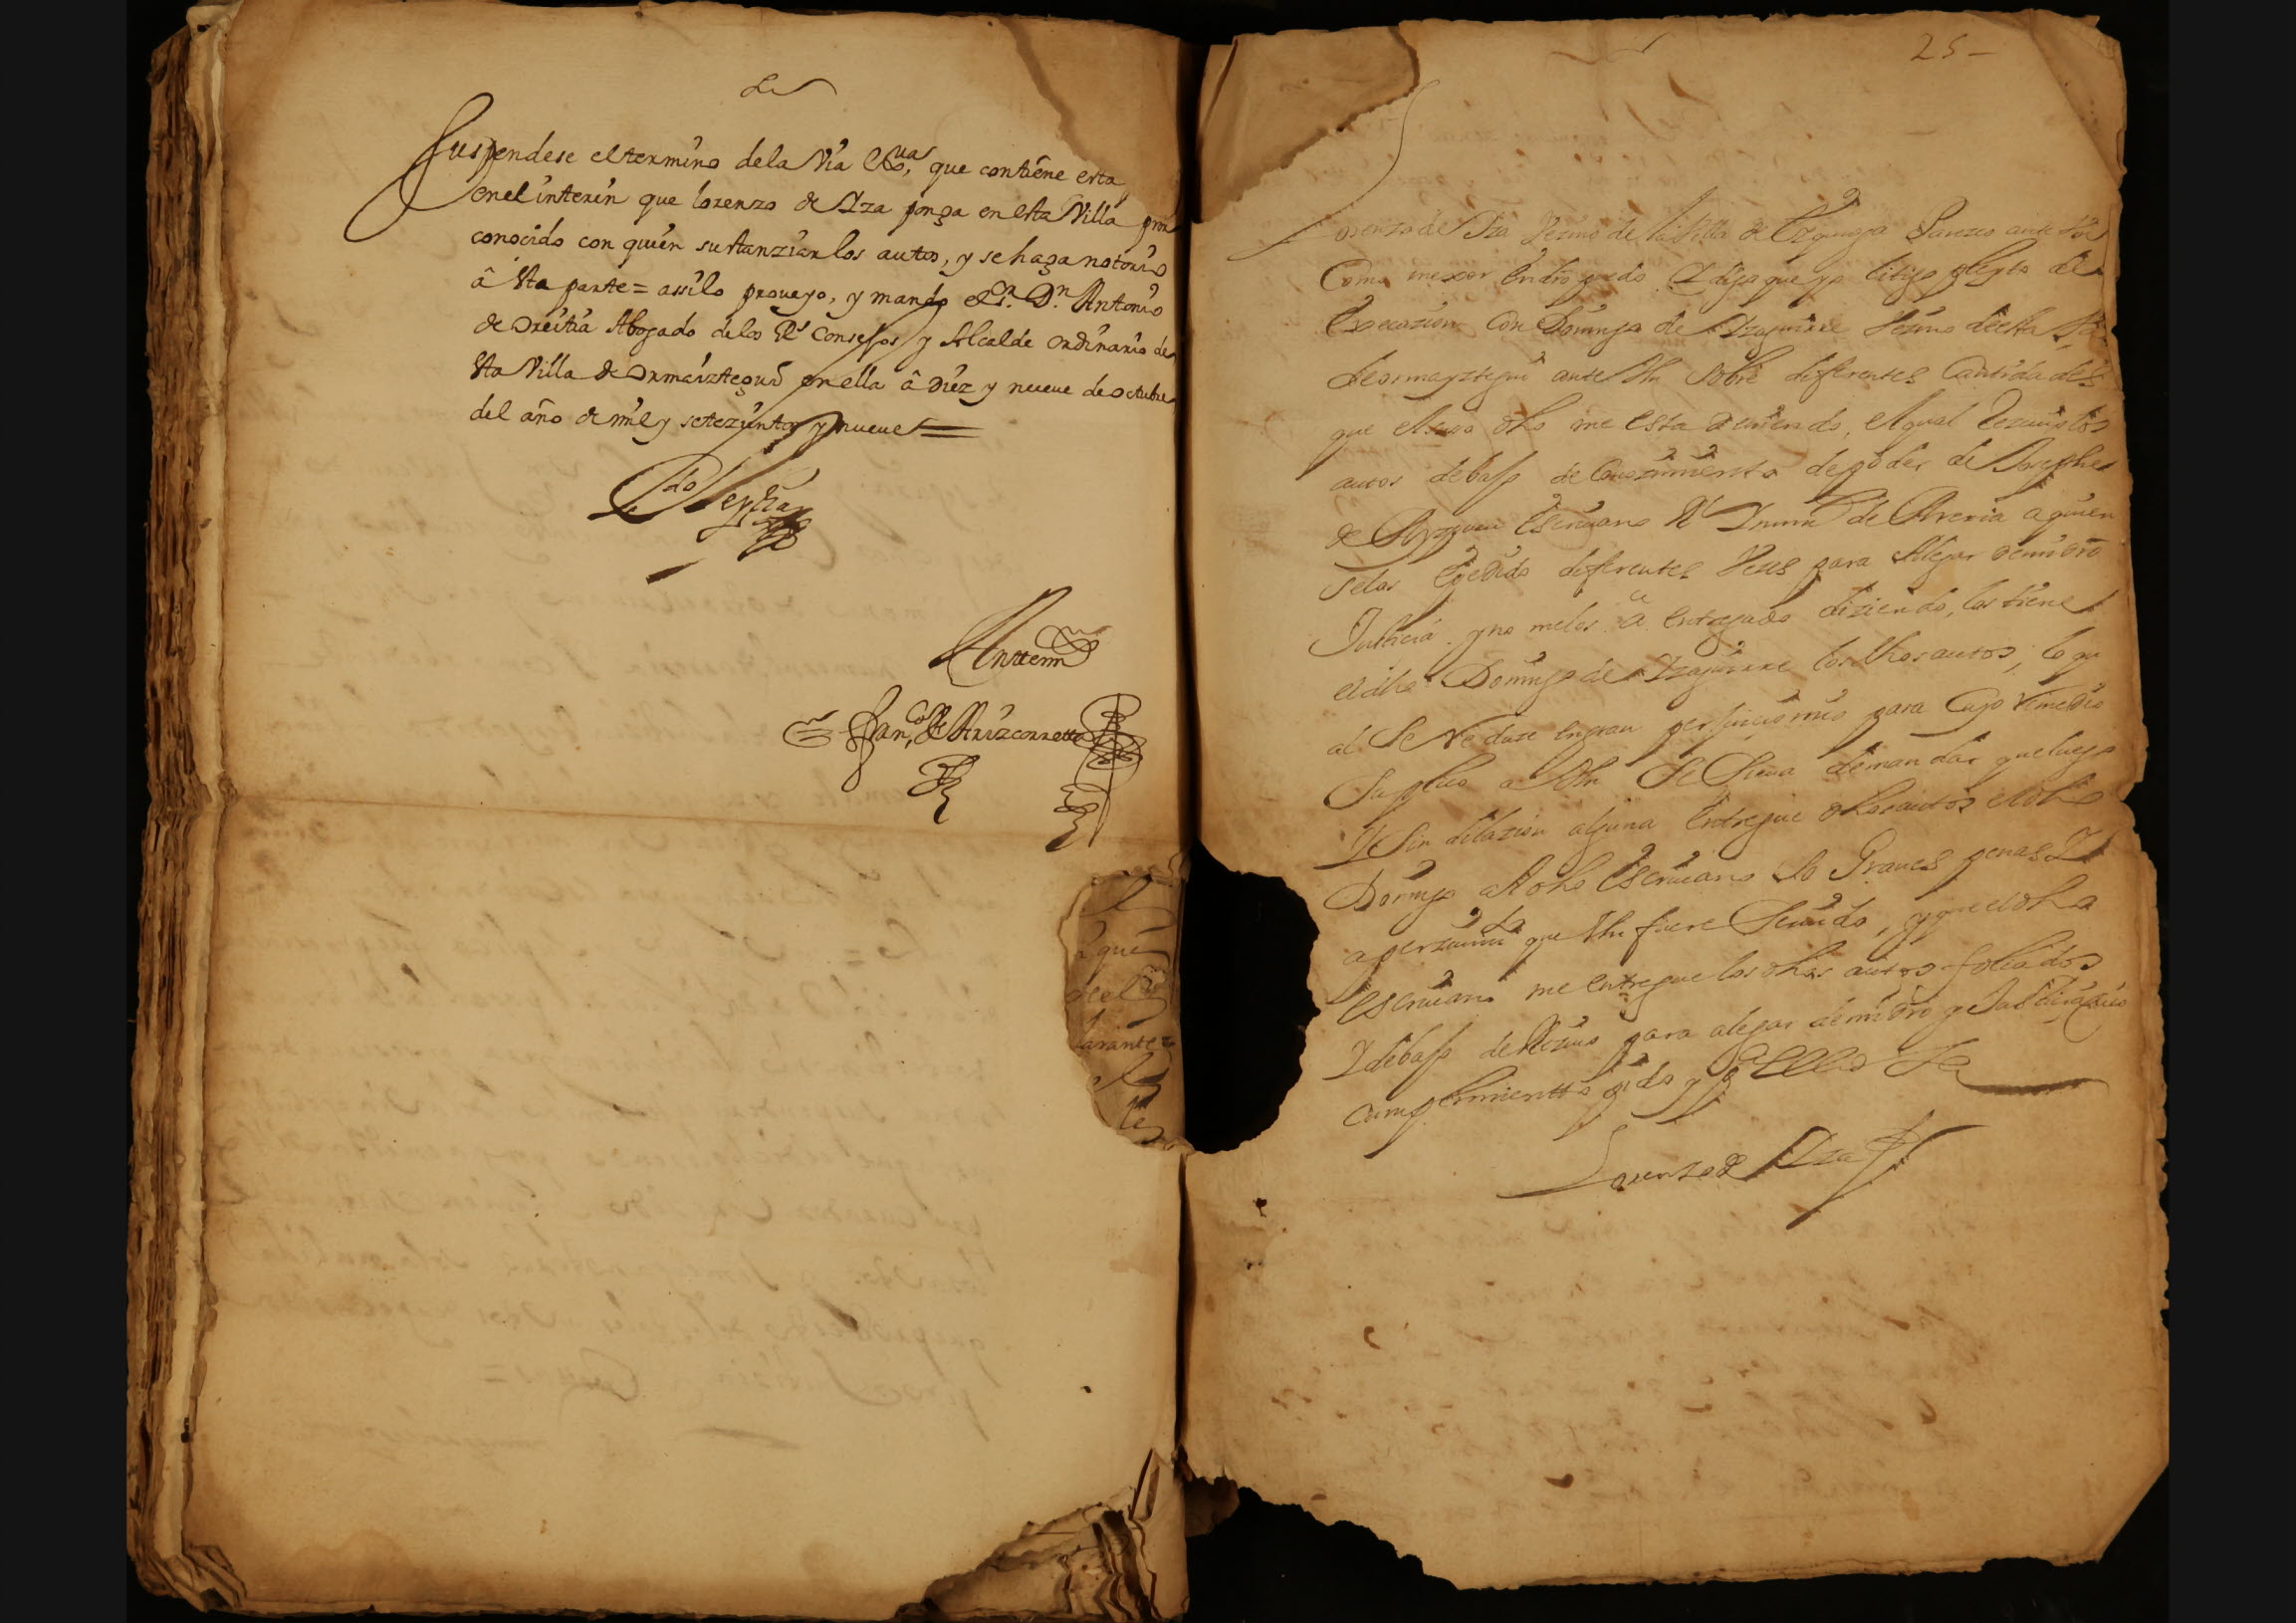 Suspendese el termino de la Via que contiene esta
en el interin que lorenzo de Yza ponga en esta Villa
conocido con quien sustanziar los autos, y se haga notorio
â Vta parte = assi lo proveyo, y mando el Sr. Dn. Antonio
de Oreitia Abogado de los Rs Consejos y Alcalde ordinario de
Vta Villa de Ormaiztegui en ella â Diez y nueve de octubre
del año de mil y setezientos y nueve =
Anttemi
Franco de Arizcorreta
a que
25
Lorenzo de Yza Vezino de la Villa de Parezco ante
Como mexor en dro puedo Y digo que yo litigo pleyto de
execuzion con Domingo de Yzaguirre Vezino de esta
de ormayztegui ante Vm sobre diferentes Cantidades
que el suso dho me esta deviendo, el qual los
autos debajo de Conozimiento de poder de Joseph
de escrivano Rl de a quien
se los e pedido diferentes Vezes para Alegar de mi dro
Justicia y no me los a entregado diziendo, los tiene
el dho Domingo de Yzaguirre los dhos autos, lo qu
al se Reduze en gran perjuicio mio para Cuyo Remedio
Suplico a Vm Se Sirva de mandar que luego
Y Sin dilazion alguna entregue dhos autos el dho
Domingo al dho Escrivano so Graves penas Y
aperzivimto que Vm fuere Servido, y que el dho
escrivano me entregue los dhos autos foliados
Y debajo de para alegar de mi dro y Justicia
Cumplimiento pido y
Lorenzo de Yza